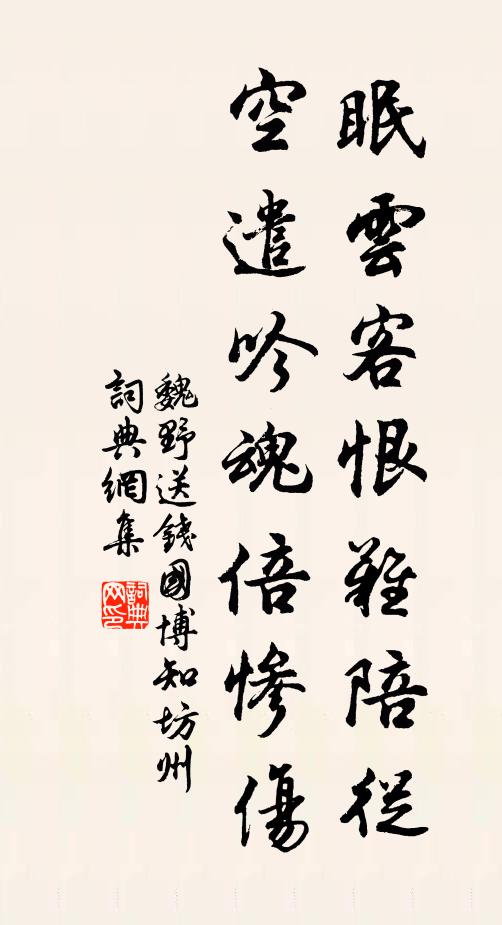 眠雲客恨難陪從
空遣吟魂倍慘傷
魏野送錢國博知坊州
詞典網集
詞典
网印